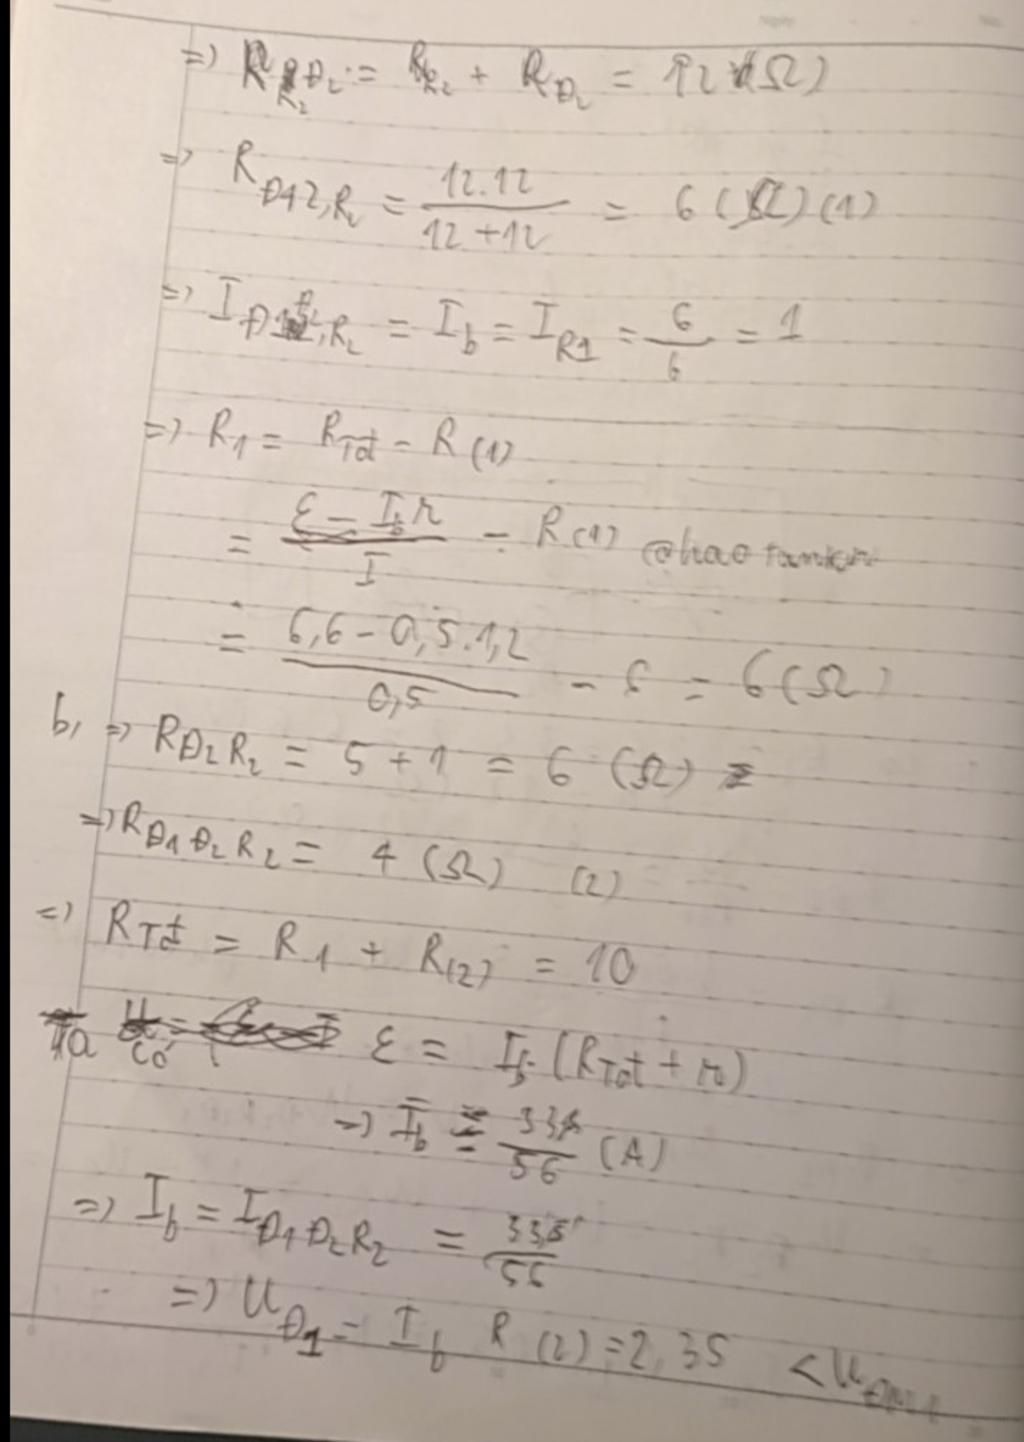 => R_{R₂Đ₂} = R_{R₂} + R_{Đ₂} = 12 (Ω)
=> R_{Đ12,R₂} = \frac{12.12}{12+12} = 6 (Ω) (1)
=> I_{Đ1Đ₂,R₂} = I_b = I_{R1} = \frac{6}{6} = 1
=> R₁ = R_{Tđ} - R_{(1)}
= \frac{ε - I_b r}{I} - R_{(1)}
= \frac{6,6 - 0,5.1,2}{0,5} - 6 = 6 (Ω)
b, => R_{Đ₂R₂} = 5 + 1 = 6 (Ω)
=> R_{Đ1Đ₂R₂} = 4 (Ω) (2)
=> R_{Tđ} = R₁ + R_{(2)} = 10
Ta có ε = I_b (R_{Tđ} + r)
=> I_b = \frac{33}{56} (A)
=> I_b = I_{Đ1Đ₂R₂} = \frac{33}{56}
=> U_{Đ1} = I_b R_{(2)} = 2,35 < U